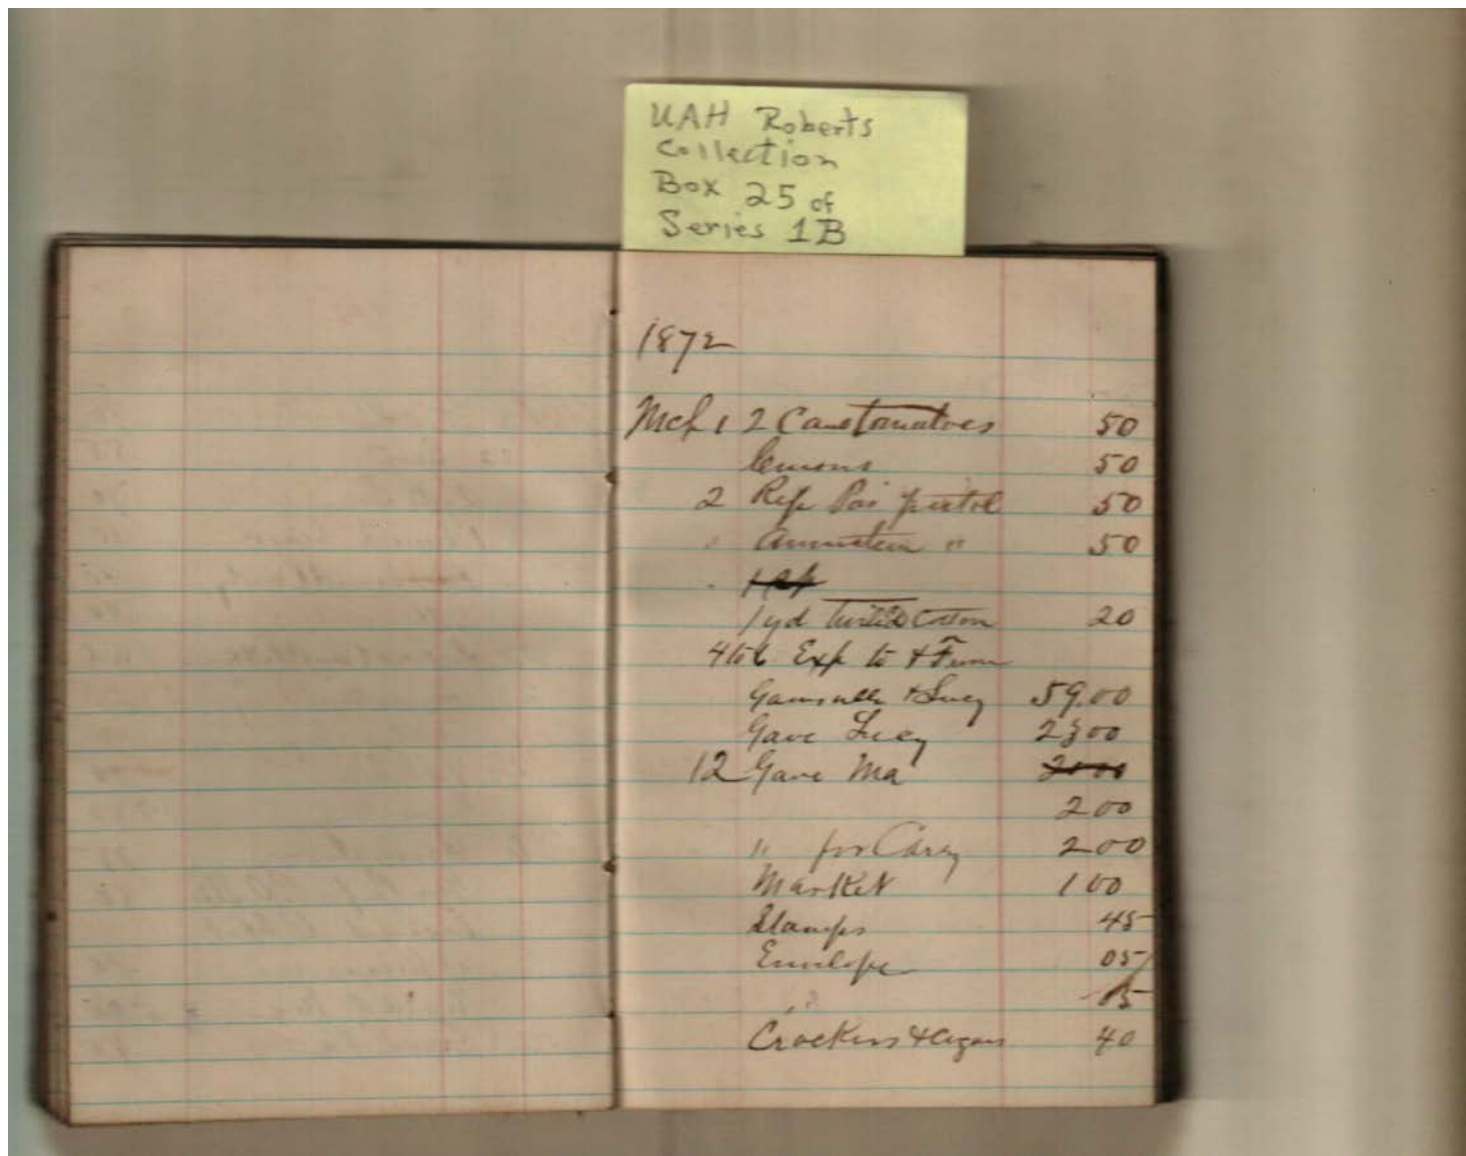 UAH Roberts
Collection
Box 25 of
Series 1B
1872
Mch 1 2 Cans tomatoes 50
lemons 50
2 Rep pistol 50
" 50
1 yd Cotton 20
4 to 6 Exp to & From
& Lucy 59.00
Gave Lucy 2300
12 Gave Ma 2000
200
" for Carey 200
Market 100
Stamps 45
Envelope 05
05
Crackers & cigars 40